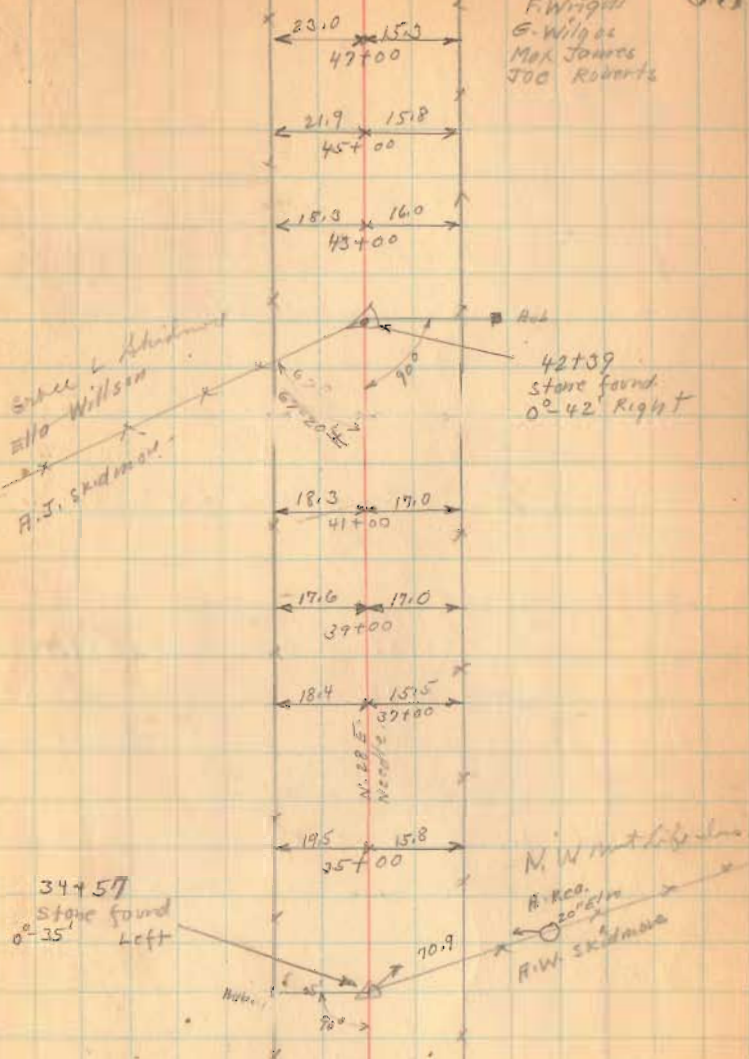 F. Wright
G. Wilgos
Max James
Joe Roberts
23.0 15.3
47+00
21.9 15.8
45+00
18.3 16.0
43+00
Hub
90°
42+39
stone found
0°-42' Right
Ella Willson
A.J. Skidmore
18.3 17.0
41+00
17.6 17.0
39+00
18.4 15.5
37+00
N. 28 E.
Needle
19.5 15.8
35+00
34+57
Stone found
0°-35' Left
N.W.
A. Rea.
20" Elm
A.W. Skidmore
70.9
Hub
90°